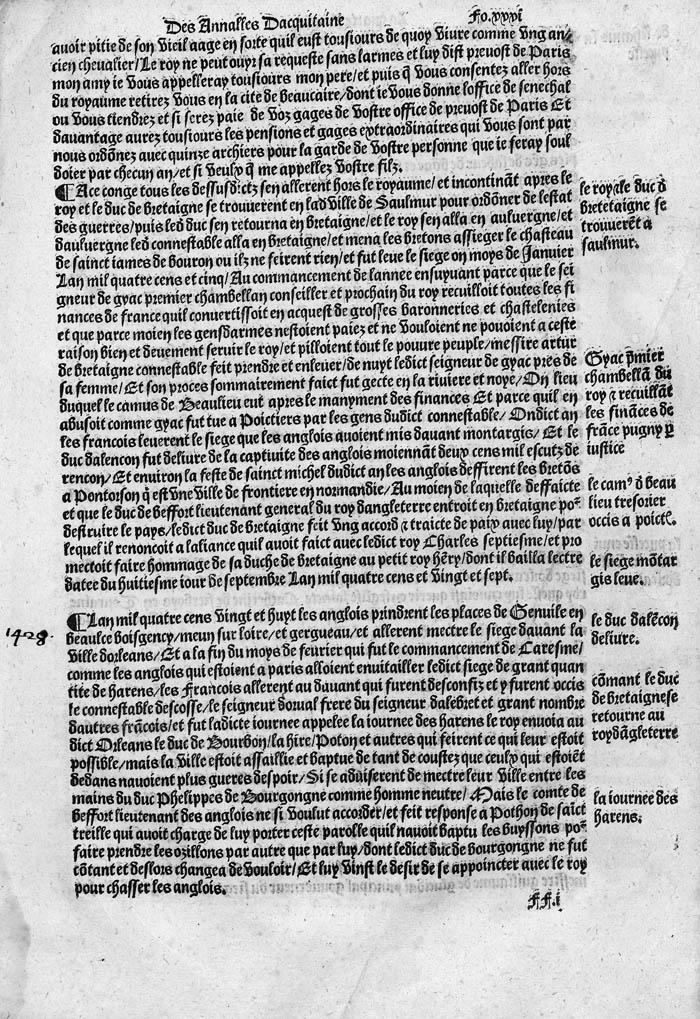 Des Annalles Dacquitaine Fo.xxxi
auoir pitie de son vieil aage en sorte quil eust tousiours de quoy viure comme vng an/
cien cheualier/Le roy ne peut ouyr sa requeste sans larmes et luy dist preuost de Paris
mon amy ie vous appelleray tousiours mon pere/et puis q̃ vous consentez aller hors
du royaume retirez vous en la cite de beaucaire/dont ie vous donne loffice de senechal
ou vous tiendrez et si serez paie de voz gages de vostre office de preuost de Paris Et
dauantage aurez tousiours les pensions et gages extraordinaires qui vous sont par
nous ordõnez auec quinze archiers pour la garde de vostre personne que ie feray soul
doier par checun an/et si veulx q̃ me appellez vostre filz.
¶ Ace conge tous les dessusdictz sen allerent hors le royaume/et incontinãt apres le
roy et le duc de bretaigne se trouuerent en lad ville de Saulmur pour ordõner de lestat
des guerres/puis led duc sen retourna en bretaigne/et le roy sen alla en auluergne/et
dauluergne led connestable alla en bretaigne/et mena les bretons assieger le chasteau
de sainct iames de bouron ou ilz ne feirent rien/et fut leue le siege on moys de Januier
Lan mil quatre cens et cinq/Au commancement de lannee ensuyuant parce que le sei
gneur de gyac premier chãbellan conseiller et prochain du roy recuilloit toutes les fi
nances de france quil conuertissoit en acquest de grosses baronneries et chastelenies
et que parce moien les gensdarmes nestoient paiez et ne vouloient ne pouoient a ceste
raison bien et deuement seruir le roy/et pilloient tout le pouure peuple/messire artur
de bretaigne connestable feit prendre et enleuer/de nuyt ledict seigneur de gyac pres de
sa femme/Et son proces sommairement faict fut gecte en la riuiere et noye/On lieu
duquel le camus de Beaulieu eut apres le manyment des finances Et parce quil en
abusoit comme gyac fut tue a Poictiers par les gens dudict connestable/Ondict an
les francois leuerent le siege que les anglois auoient mis dauant montargis/Et le
duc dalencon fut deliure de la captiuite des anglois moiennãt deux cens mil escutz de
rencon/Et enuiron la feste de sainct michel dudict an les anglois deffirent les bretõs
a Pontorson q̃ est vne ville de frontiere en normandie/Au moien de laquelle deffaicte
et que le duc de beffort lieutenant general du roy dangleterre entroit en bretaigne po⁹
destruire le pays/ledict duc de bretaigne feit vng accord ⁊ traicte de paix auec luy/par
lequel il renoncoit a laliance quil auoit faict auec ledict roy Charles septiesme/et pro
mectoit faire hommage de sa duche de bretaigne au petit roy hẽry/dont il bailla lectre
datee du huitiesme iour de septembre Lan mil quatre cens et vingt et sept.
¶ Lan mil quatre cens vingt et huyt les anglois prindrent les places de Genuile en
beaulce boisgency/meun sur loire/et gergueau/et allerent mectre le siege dauant la
ville dorleans/Et a la fin du moys de feurier qui fut le commancement de Caresme/
comme les anglois qui estoient a paris alloient enuitailler ledict siege de grant quan
tite de harens/les Francois allerent au dauant qui furent desconfiz et y furent occis
le connestable descosse/le seigneur dorual frere du seigneur dalebret et grant nombre
dautres frãcois/et fut ladicte iournee appelee la iournee des harens le roy enuoia au
dict Orleans le duc de Bourbon/la hire/Poton et autres qui feirent ce qui leur estoit
possible/mais la ville estoit assaillie et baptue de tant de coustez que ceulx qui estoiẽt
dedans nauoient plus gueres despoir/Si se aduiserent de mectre leur ville entre les
mains du duc Phelippes de Bourgongne comme homme neutre/Mais le comte de
beffort lieutenant des anglois ne si voulut accorder/et feit response a Pothon de saĩct
treille qui auoit charge de luy porter ceste parolle quil nauoit baptu les buyssons po⁹
faire prendre les ozillons par autre que par luy/dont ledict duc de bourgongne ne fut
cõtant et deslors changea de vouloir/Et luy vinst le desir de se appoincter auec le roy
pour chasser les anglois.
FF.i
le roy ⁊ le duc d
bretetaigne se
trouuerẽt a
saulmur.
Gyac p̃mier
chambellã du
roy ⁊ recuillãt
les finãces de
frãce pugny p
iustice
le cam⁹ d beau
lieu tresorier
occis a poictř.
le siege mõtar
gis leue.
1428.
le duc dalẽcon
deliure.
cõmant le duc
de bretaignese
retourne au
roydãgleterre
la iournee des
harens.